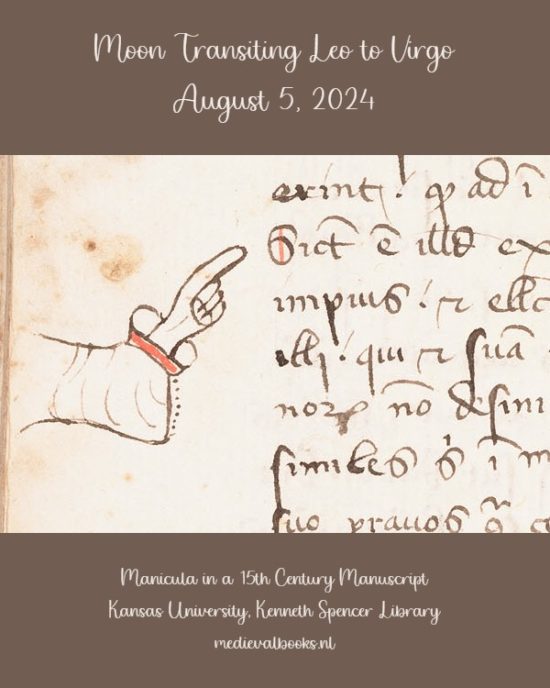 Moon Transiting Leo to Virgo
August 5, 2024
ad i
Sict ē illd
impius
illi qui suā
nō desini
similes
suo prauos
Manicula in a 15th Century Manuscript
Kansas University, Kenneth Spencer Library
medievalbooks.nl